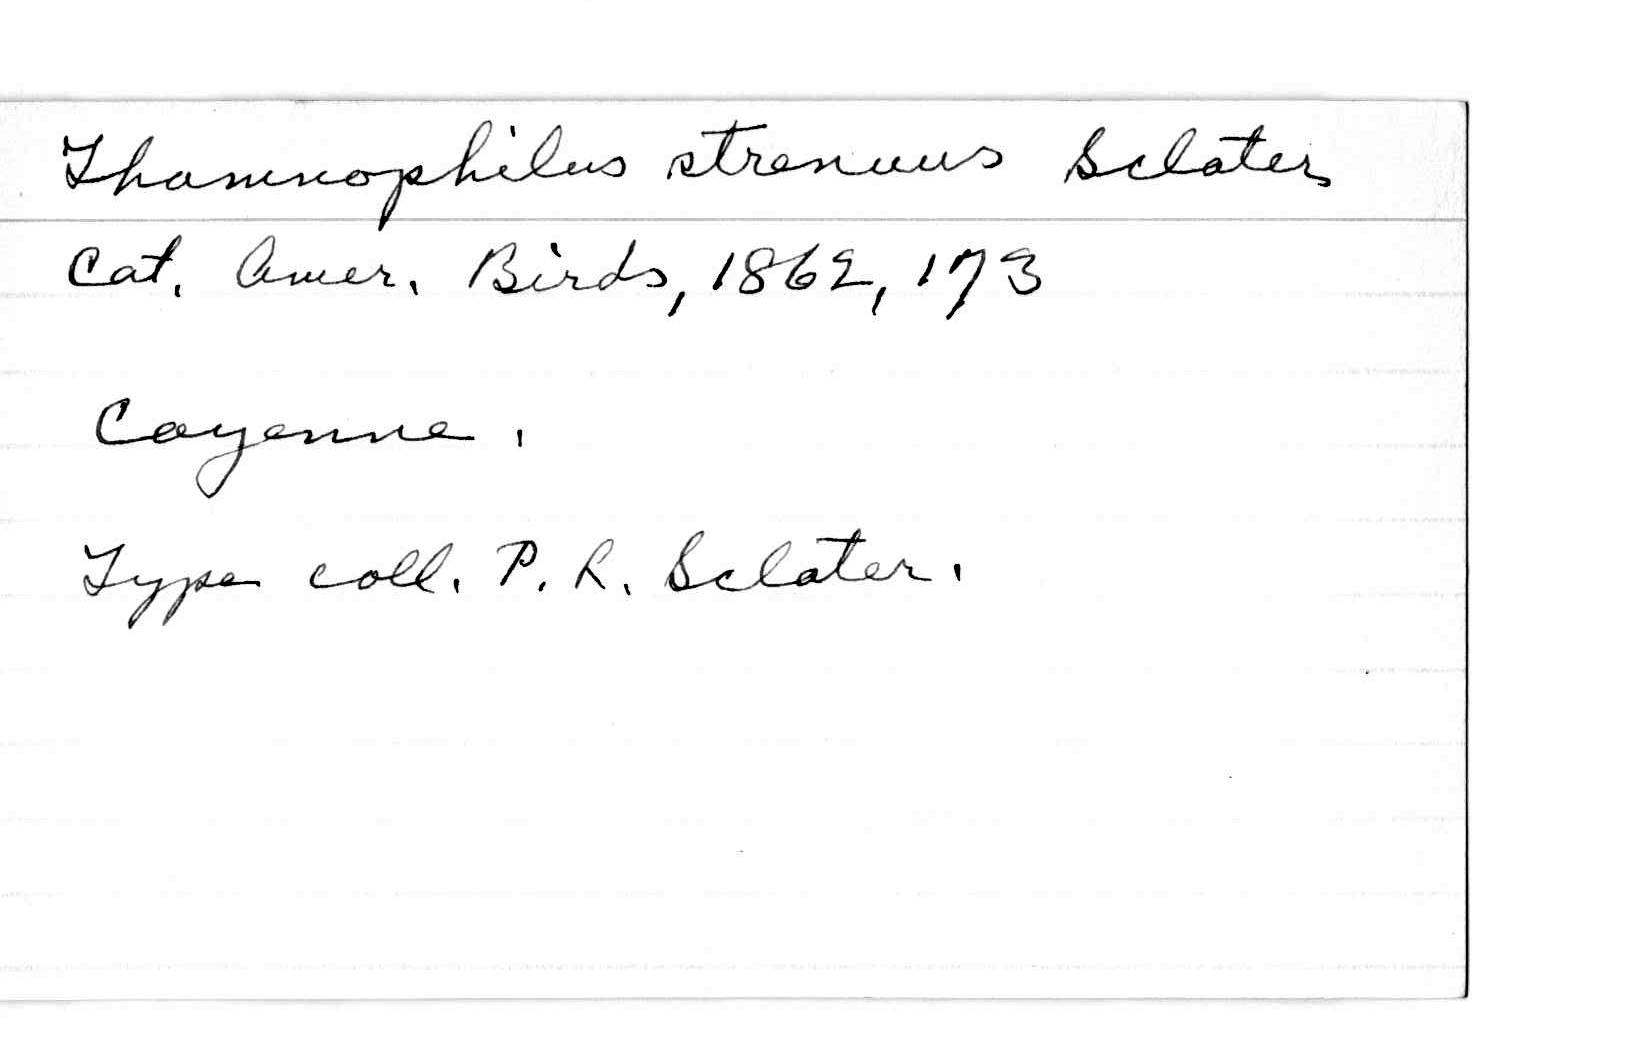 Thamnophilus strenuus Sclater
Cat. Amer. Birds, 1862, 173
Cayenne.
Type coll. P. L. Sclater.